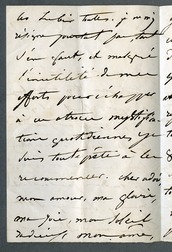 les habitudes. je m'y
résigne pourtant pas tant
s'en faut, et malgré
l'inutilité de mes
efforts pour échapper
à ce atroce mystifica-
tions quotidiennes je
suis toute prête à les
recommencer. cher adoré
mon amour, ma gloire
ma joie, mon soleil
mon âme